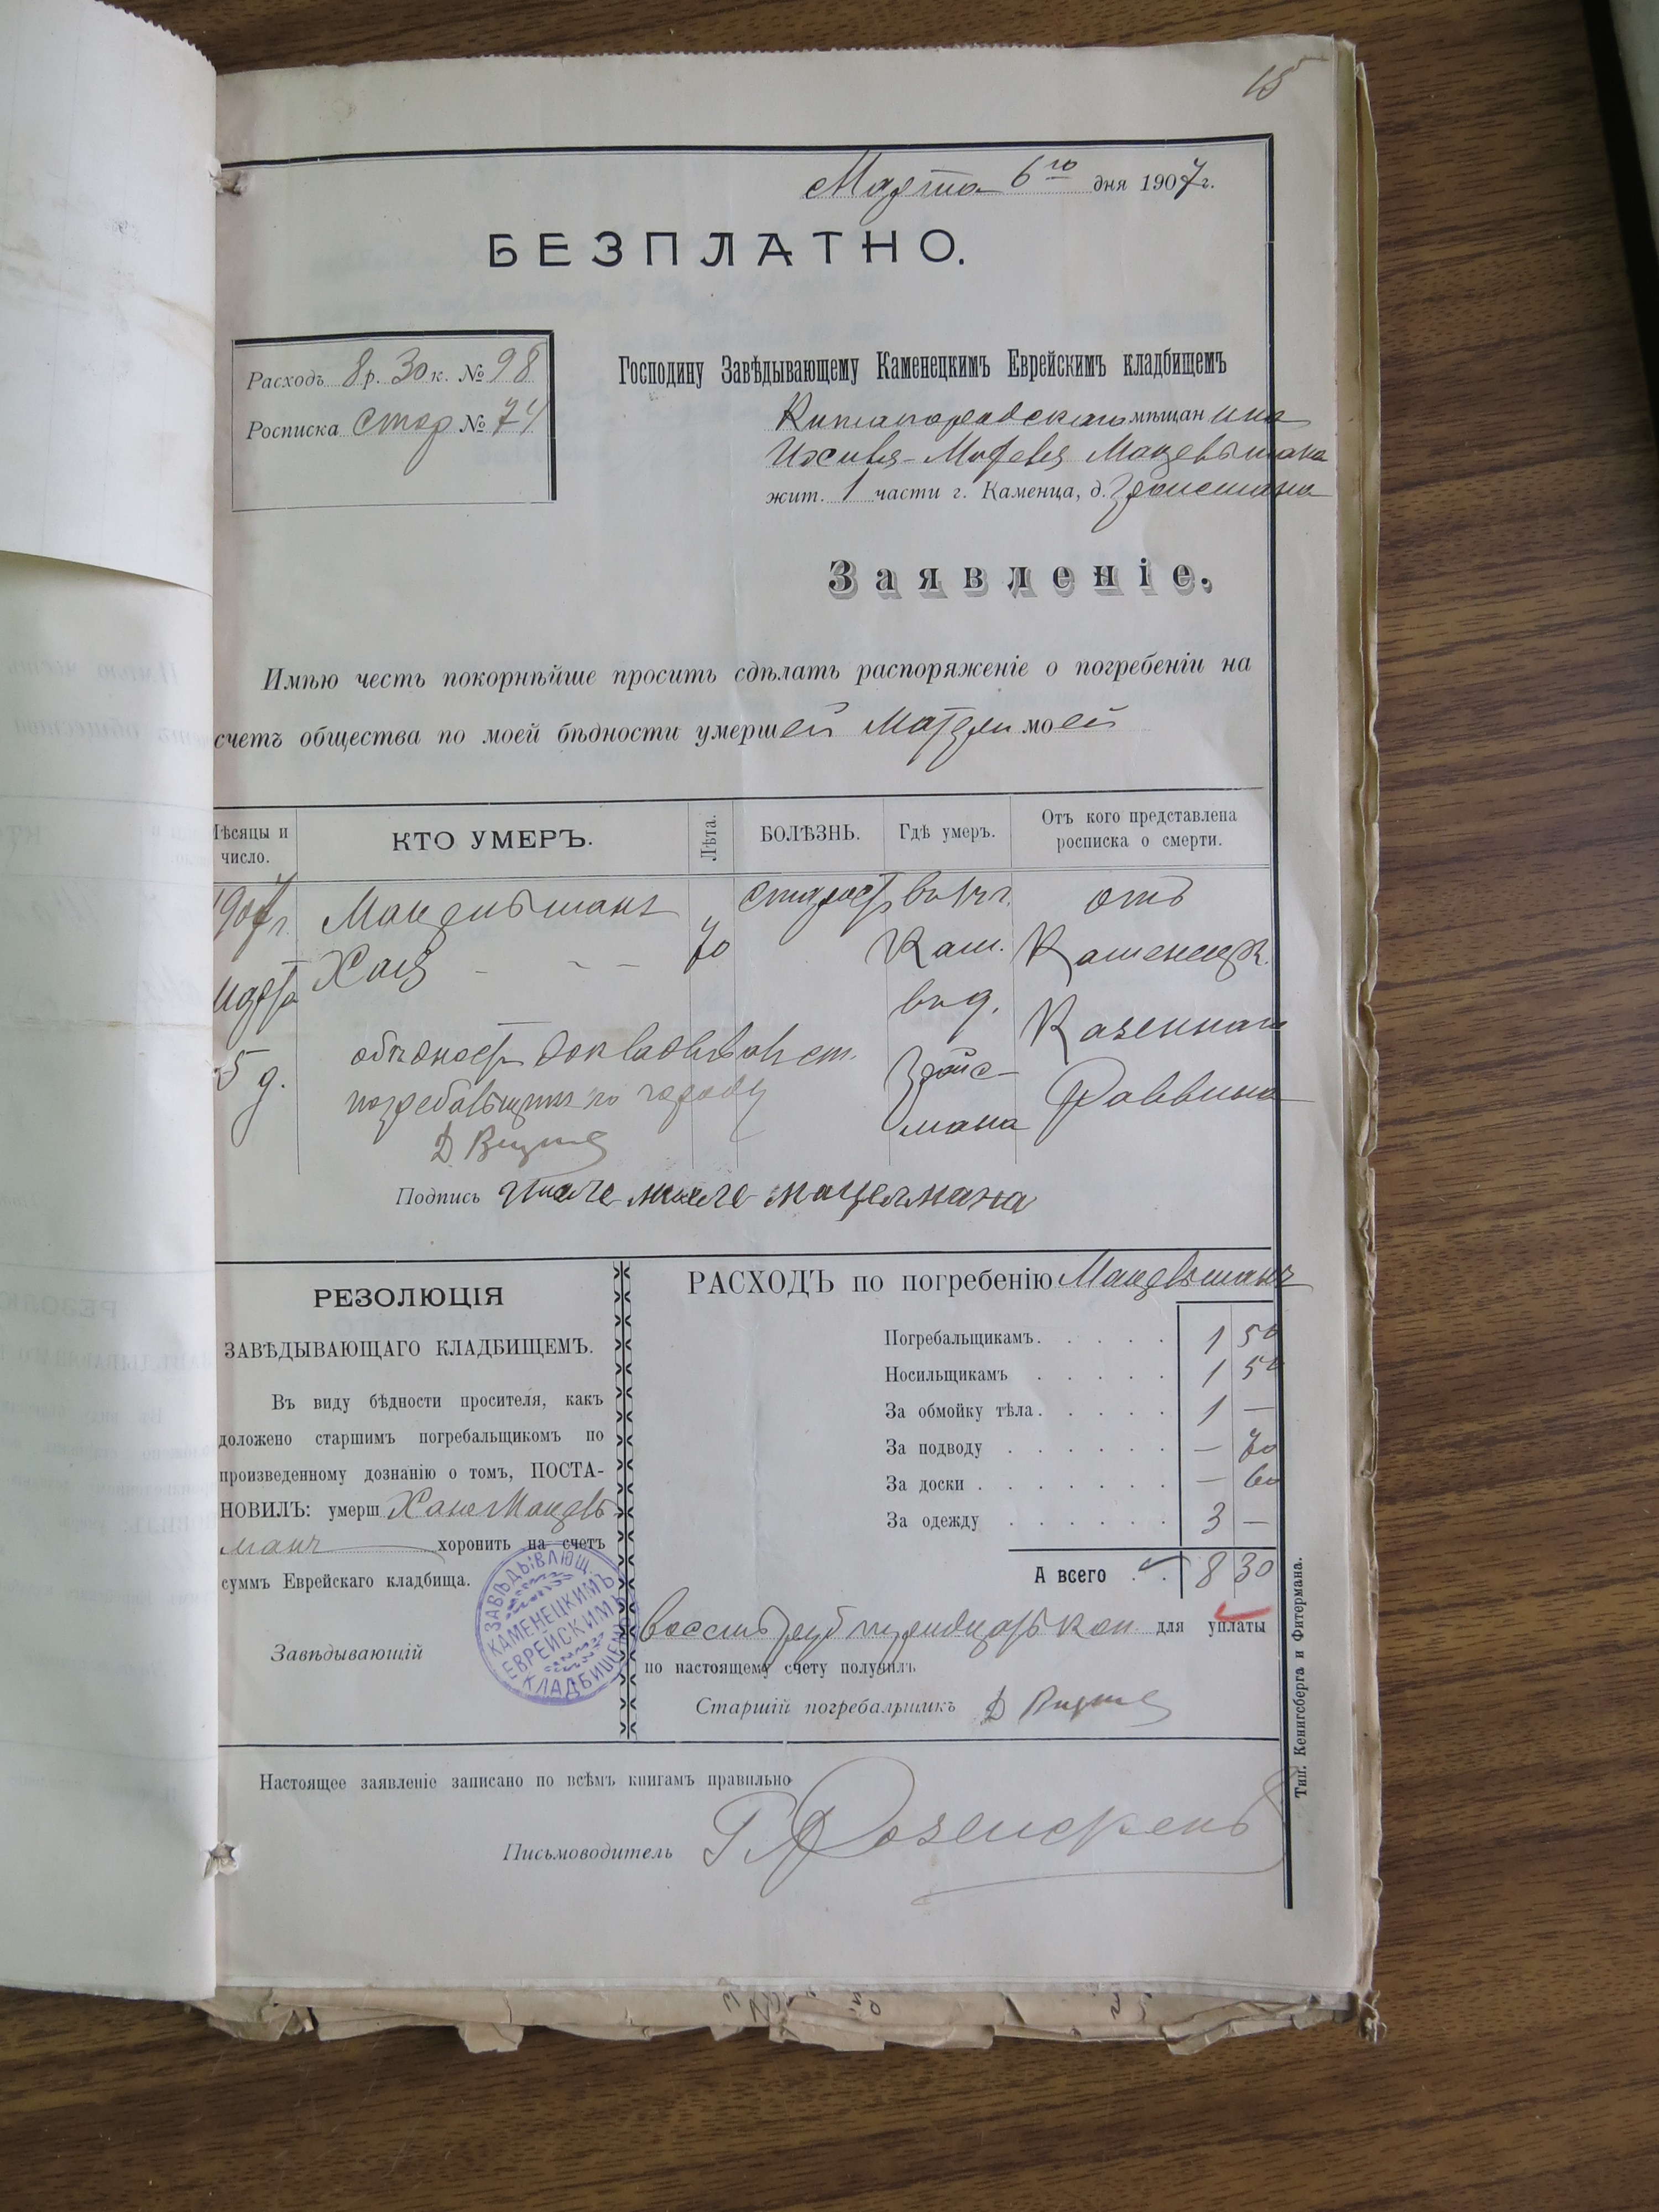 15
Марта 6го дня 1907 г.
БЕЗПЛАТНО.
Расходъ 8 р. 30 к. № 98
Росписка стар № 74
Господину Завѣдывающему Каменецкимъ Еврейскимъ кладбищемъ
Китайгородскаго мѣщанина
Мацельмана
жит. 1 части г. Каменца, д. Гройсмана
Заявленіе.
Имѣю честь покорнѣйше просить сдѣлать распоряженіе о погребеніи на
счетъ общества по моей бѣдности умершей Матери моей
Мѣсяцы и число.
КТО УМЕРЪ.
Лѣта.
БОЛѢЗНЬ.
Гдѣ умеръ.
Отъ кого представлена росписка о смерти.
1907 г. Мацельманъ 70 старость въ 1 ч. г. отъ
Хая - - - Кам. Каменецк.
марта въ д. Казеннаго
5 д. Гройс-
мана Раввина
бѣдность докладывалъ ст.
погребальщикъ по городу
Подпись мацелмана
РЕЗОЛЮЦІЯ
ЗАВѢДЫВАЮЩАГО КЛАДБИЩЕМЪ.
Въ виду бѣдности просителя, какъ
доложено старшимъ погребальщикомъ по
произведенному дознанію о томъ, ПОСТА-
НОВИЛЪ: умерш Хаю Мацель
манъ хоронить на счетъ
суммъ Еврейскаго кладбища.
Завѣдывающій
ЗАВѢДЫВАЮЩ.
КАМЕНЕЦКИМЪ
ЕВРЕЙСКИМЪ
КЛАДБИЩЕМЪ
РАСХОДЪ по погребенію Мацельманъ
Погребальщикамъ . . . . 1 50
Носильщикамъ . . . . . 1 50
За обмойку тѣла . . . . . 1 —
За подводу . . . . . . — 70
За доски . . . . . . . — 60
За одежду . . . . . . 3 —
А всего . . 8 30
восемь руб тридцать коп. для уплаты
по настоящему счету получилъ
Старшій погребальщикъ
Тип. Кенигсберга и Фитермана.
Настоящее заявленіе записано по всѣмъ книгамъ правильно
Письмоводитель